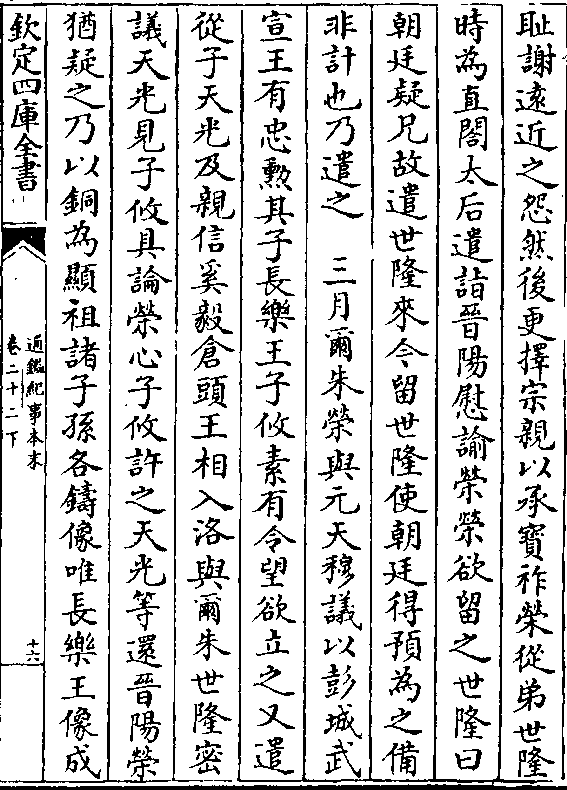 恥謝遠近之怨然後更擇宗親以承寶祚榮從弟世隆
時為直閤太后遣詣晉陽慰諭榮榮欲留之世隆曰
朝廷疑兄故遣世隆來今留世隆使朝廷得預為之備
非計也乃遣之　三月爾朱榮與元天穆議以彭城武
宣王有忠勲其子長樂王子攸素有令望欲立之又遣
從子天光及親信奚毅倉頭王相入洛與爾朱世隆密
議天光見子攸具論榮心子攸許之天光等還晉陽榮
猶疑之乃以銅為顯祖諸子孫各鑄像唯長樂王像成
欽定四庫全書
通鑑紀事本末
卷二十二下
十六